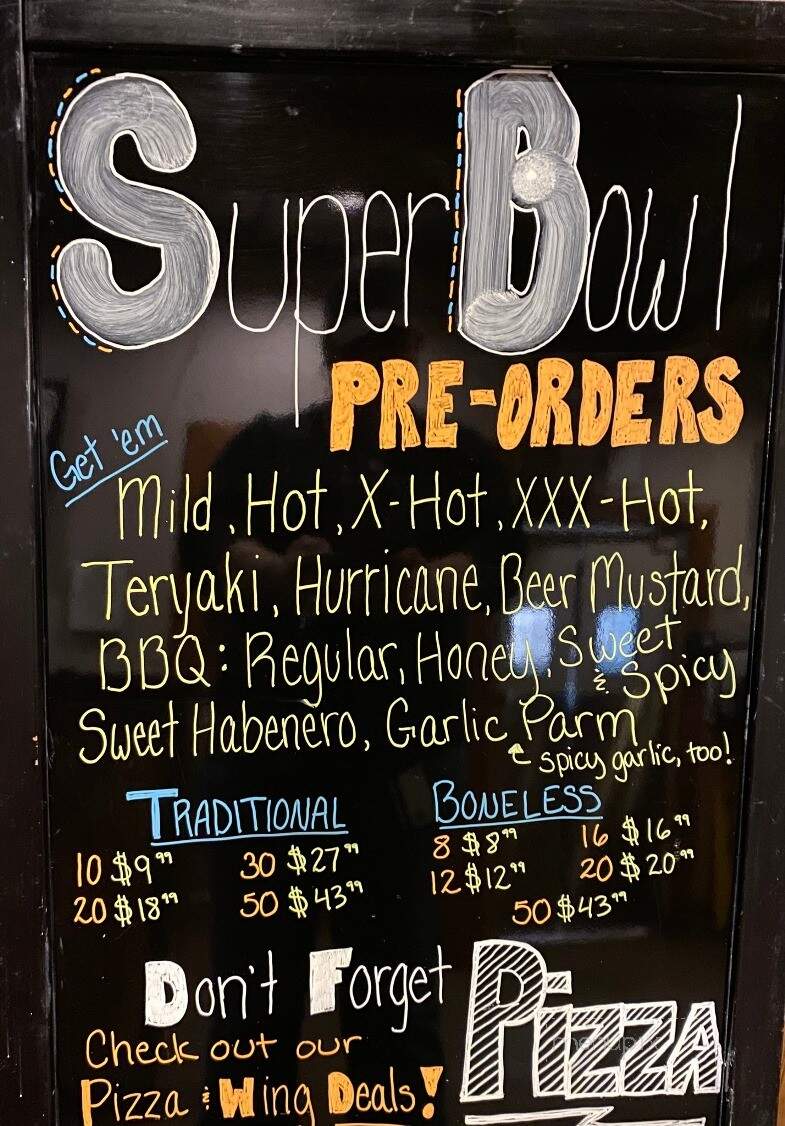 Super Bowl
PRE-ORDERS
Get 'em
Mild, Hot, X-Hot, XXX-Hot,
Teryaki, Hurricane, Beer Mustard,
BBQ: Regular, Honey, Sweet
& Spicy
Sweet Habenero, Garlic Parm
spicy garlic, too!
TRADITIONAL
10 $9.99 30 $27.99
20 $18.99 50 $43.99
BONELESS
8 $8.99 16 $16.99
12 $12.99 20 $20.99
50 $43.99
Don't Forget PIZZA
Check out our
Pizza & Wing Deals!